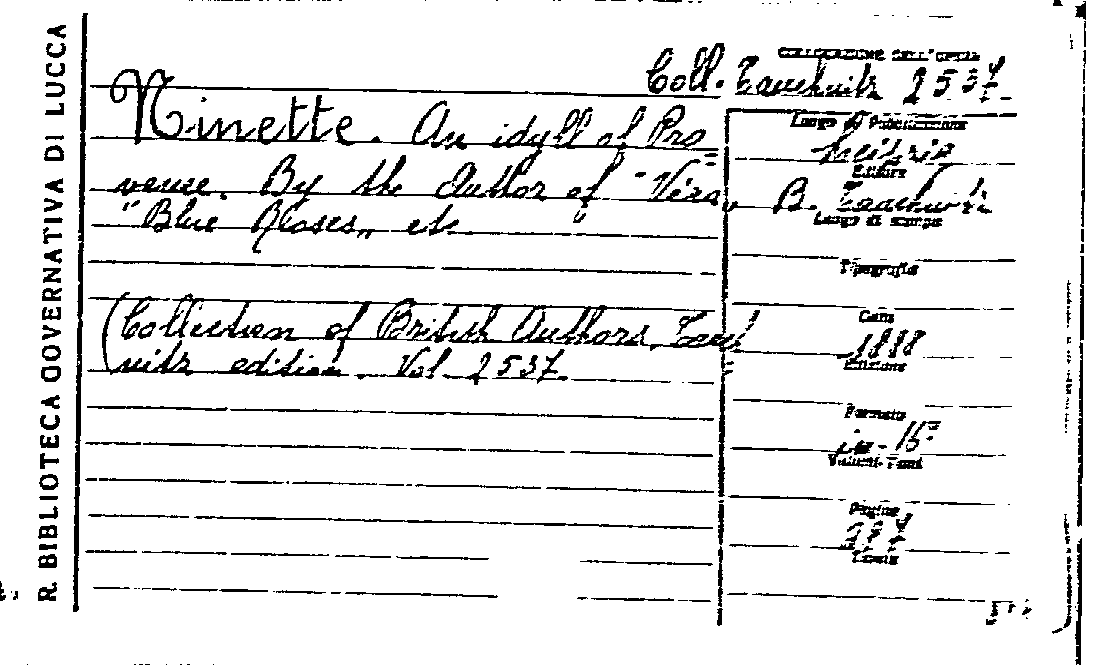 R. BIBLIOTECA GOVERNATIVA DI LUCCA
COLLOCAZIONE DELL'OPERA
Coll. Tauchnitz 2537
Ninette. An idyll of Pro=
vence. By the Author of "Véra„
"Blue Roses„ etc
(Collection of British Authors. Tauch=
nitz edition. Vol. 2537.
Luogo di Pubblicazione
Leipzig
Editore
B. Tauchnitz
Luogo di stampa
Tipografia
Anno
1888
Edizione
Formato
in-16°
Volumi-Tomi
Pagine
Tavole